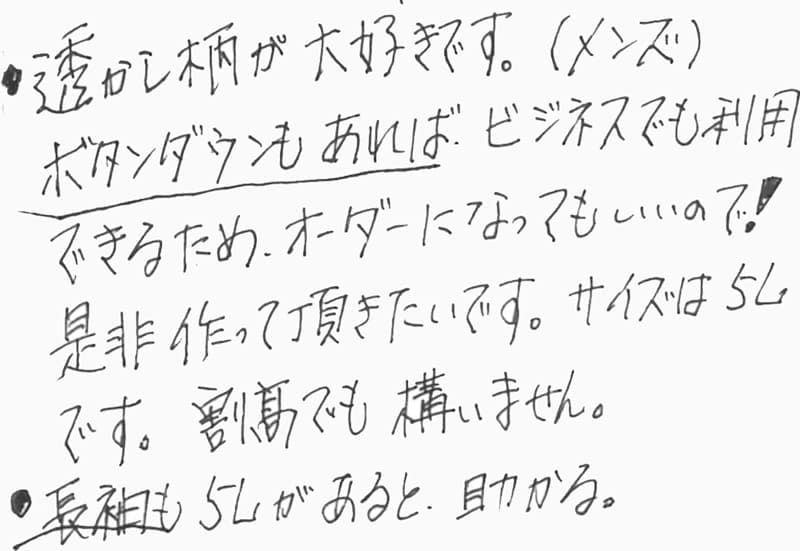 ・透かし柄が大好きです。(メンズ)
ボタンダウンもあれば、ビジネスでも利用
できるため、オーダーになってもいいので!
是非作って頂きたいです。サイズは5L
です。割髙でも構いません。
・長袖も5Lがあると、助かる。